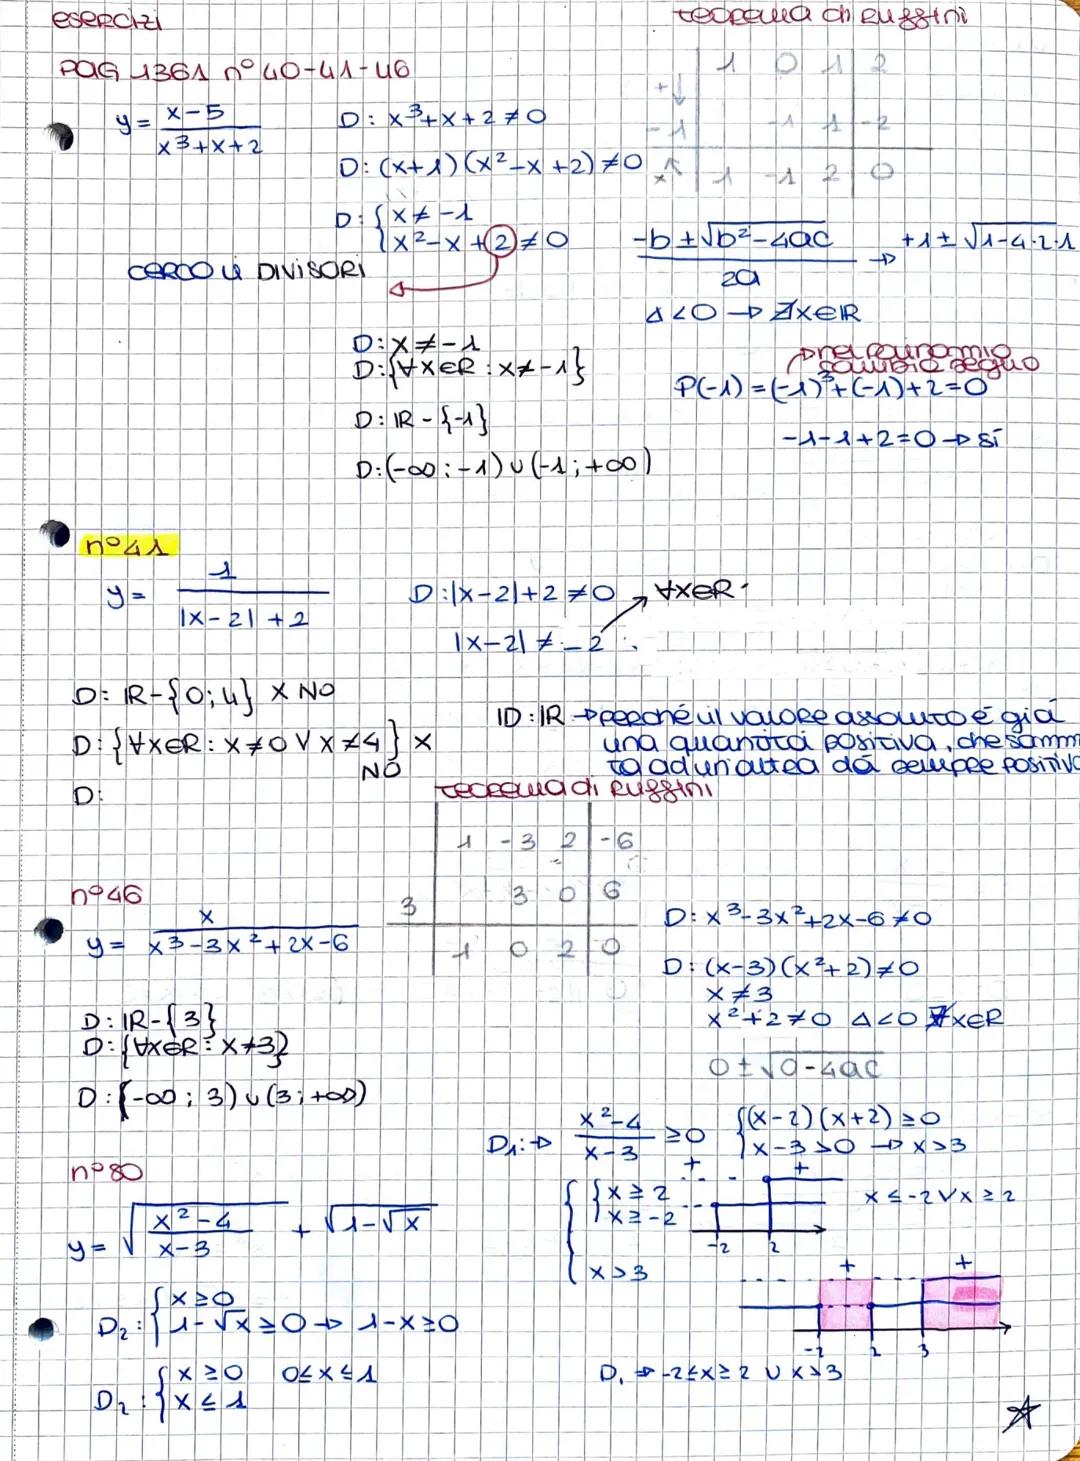 esercizi
teorema di Ruffini
PAG 1361 n° 40-41-46
1 0 1 2
+↓
-1 -1 1 -2
x↖ 1 -1 2 0
y = x-5 / x³+x+2
D: x³+x+2≠0
D: (x+1)(x²-x+2)≠0
D: { x≠-1
x²-x+2≠0
CERCO i DIVISORI
-b±√b²-4ac / 2a → +1±√1-4·2·1
Δ<0 → ∄x∈IR
D: x≠-1
D: {∀x∈R : x≠-1}
D: IR-{-1}
D: (-∞; -1) ∪ (-1; +∞)
nel polinomio
cambia segno
P(-1) = (-1)³+(-1)+2=0
-1-1+2=0 → sì
n°41
y = 1 / |x-2|+2
D: |x-2|+2≠0
∀x∈R
|x-2|≠-2
D: IR-{0;4} X NO
D: {∀x∈R: x≠0 ∨ x≠4} X
NO
D:
ID: IR → perché il valore assoluto è già
una quantità positiva, che somma
ta ad un'altra dà sempre positivo
teorema di Ruffini
1 -3 2 -6
3 3 0 6
1 0 2 0
n°46
y = x / x³-3x²+2x-6
D: x³-3x²+2x-6≠0
D: (x-3)(x²+2)≠0
x≠3
x²+2≠0 Δ<0 ∄x∈R
0±√0-4ac
D: IR-{3}
D: {∀x∈R: x≠3}
D: (-∞; 3) ∪ (3; +∞)
D₁: → x²-4 / x-3 ≥0 { (x-2)(x+2)≥0
x-3>0 → x>3
n°80
y = √x²-4 / x-3 + √1-√x
{ { x≥2
x≥-2
x>3
+ +
-2 2
x≤-2 ∨ x≥2
+ +
-2 2 3
D₂: { x≥0
1-√x≥0 → 1-x≥0
D₂: { x≥0
x≤1
0≤x≤1
D₁ → -2≤x≥2 ∪ x>3